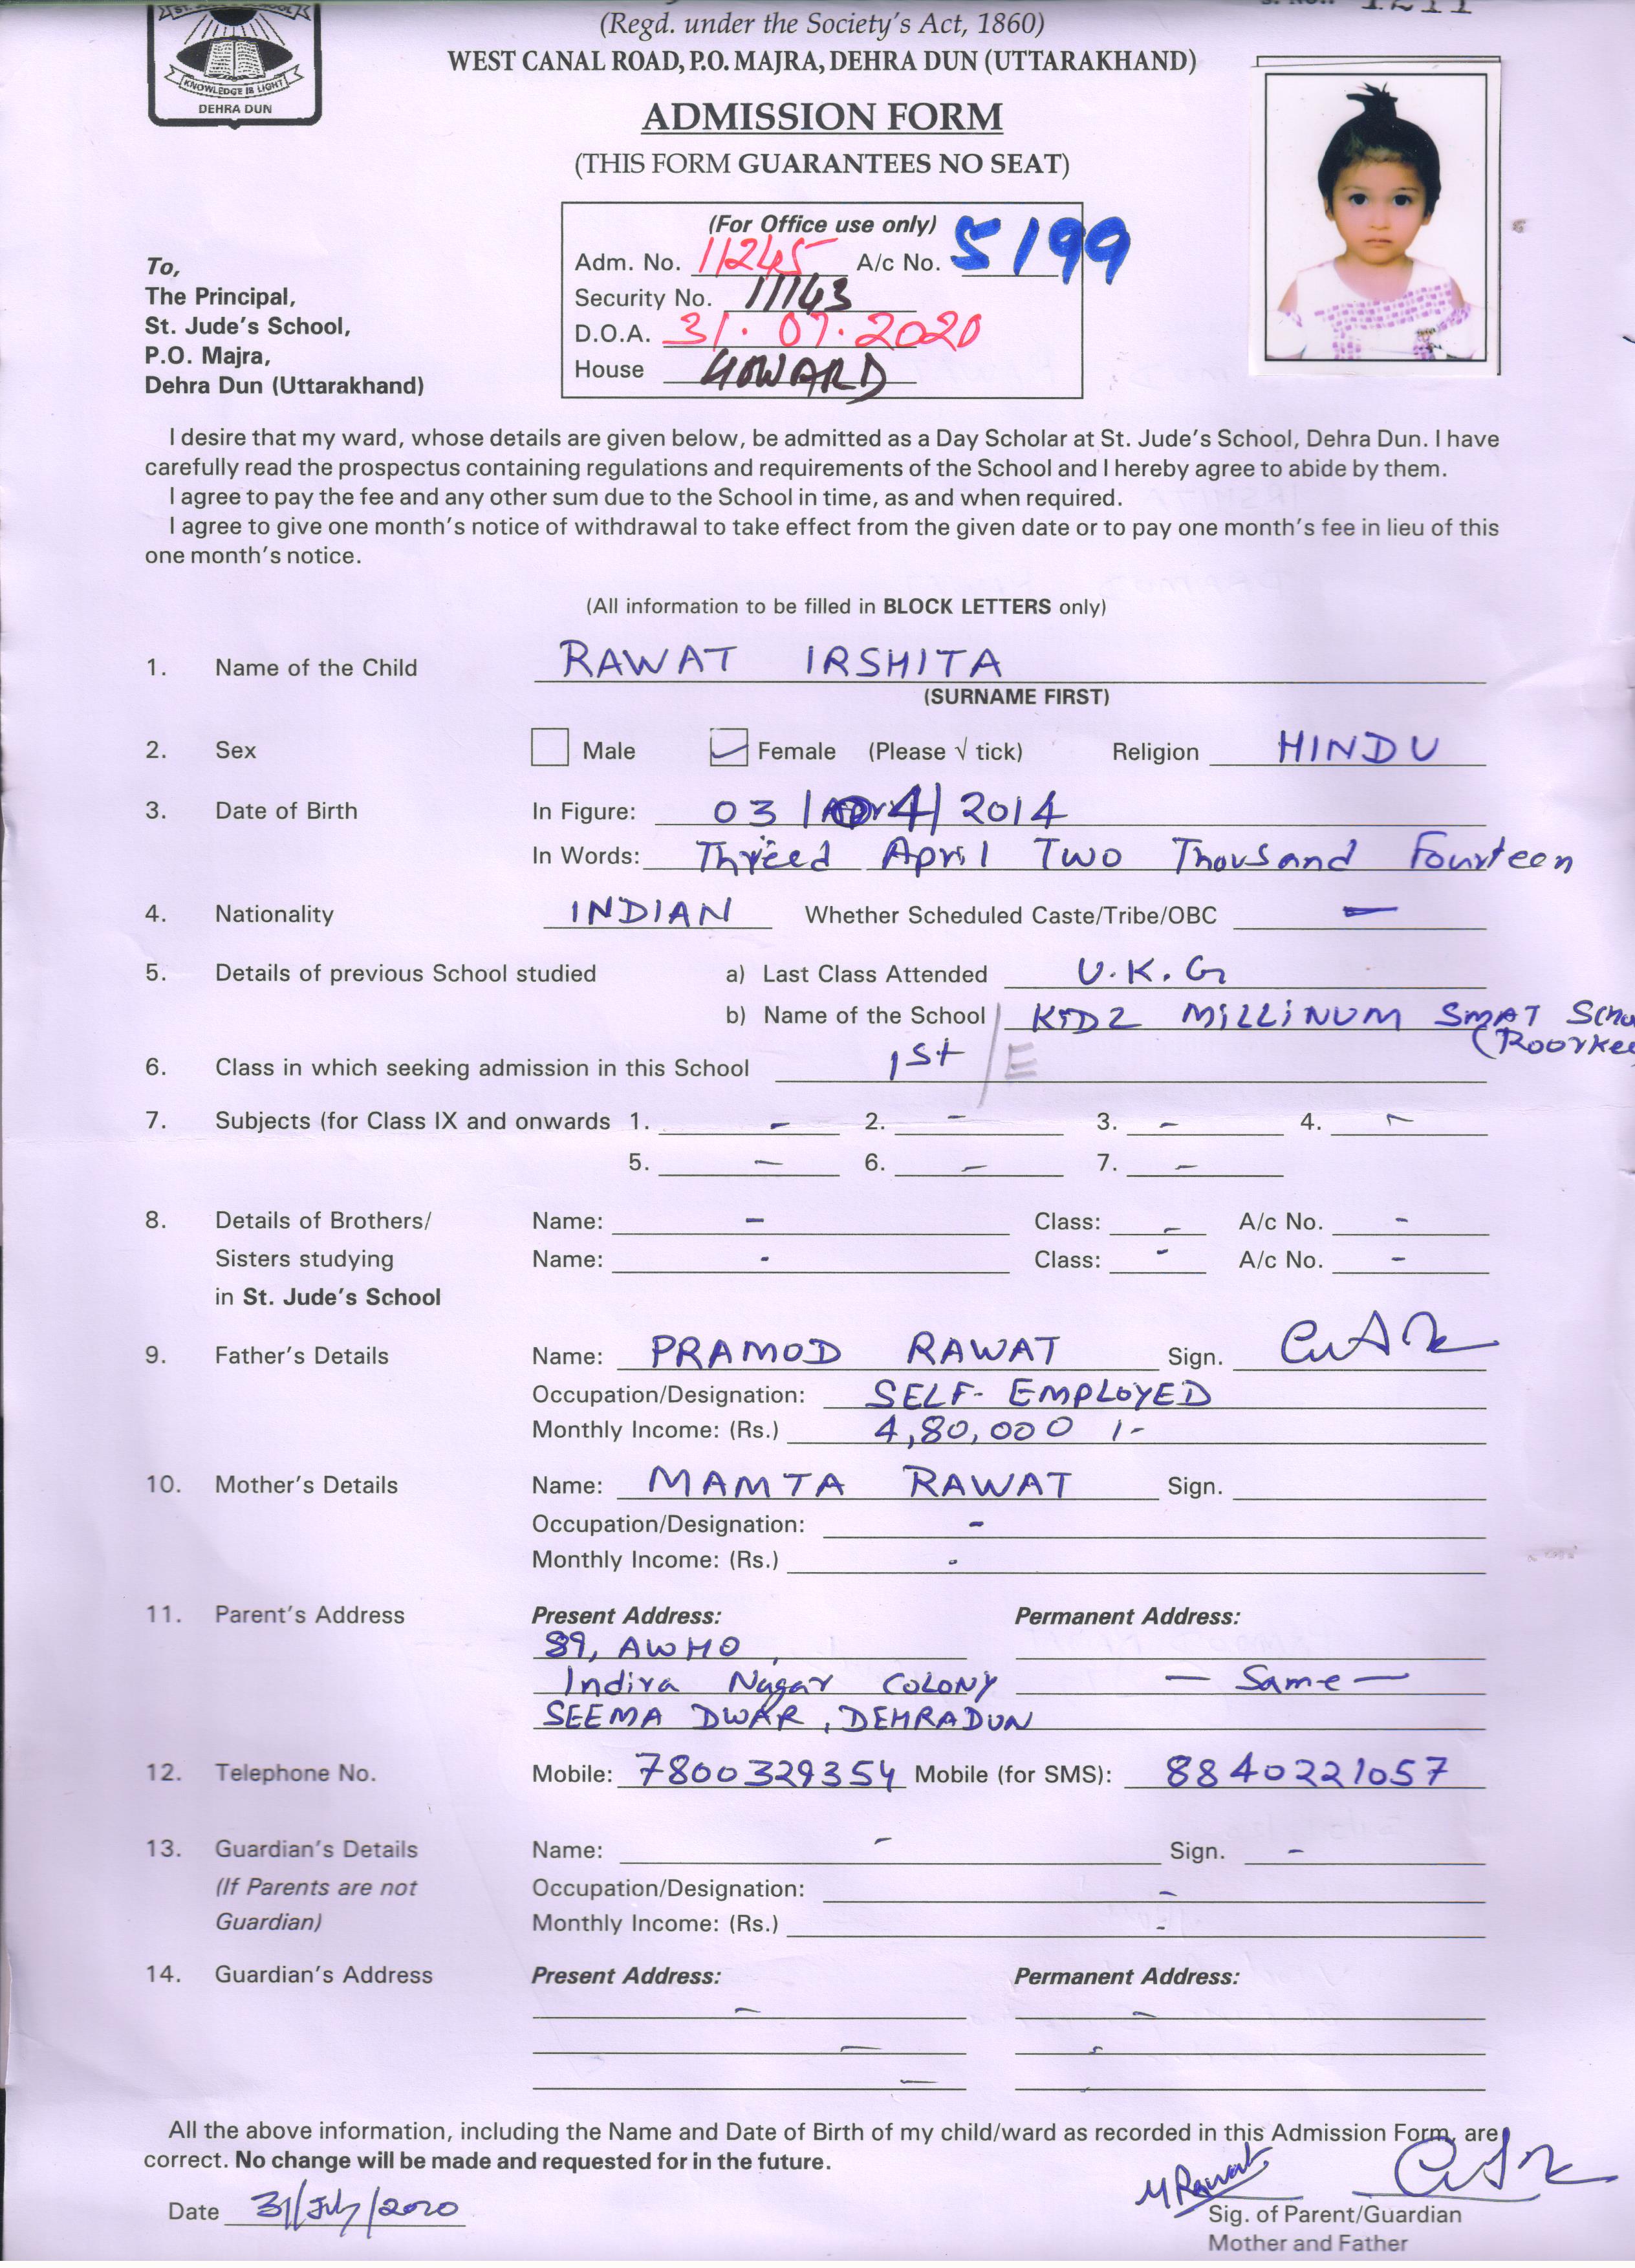 KNOWLEDGE IS LIGHT
DEHRA DUN
(Regd. under the Society's Act, 1860)
WEST CANAL ROAD, P.O. MAJRA, DEHRA DUN (UTTARAKHAND)
ADMISSION FORM
(THIS FORM GUARANTEES NO SEAT)
(For Office use only)
Adm. No. 11245 A/c No. 5199
Security No. 11143
D.O.A. 31.07.2020
House HOWARD
To,
The Principal,
St. Jude's School,
P.O. Majra,
Dehra Dun (Uttarakhand)
I desire that my ward, whose details are given below, be admitted as a Day Scholar at St. Jude's School, Dehra Dun. I have
carefully read the prospectus containing regulations and requirements of the School and I hereby agree to abide by them.
I agree to pay the fee and any other sum due to the School in time, as and when required.
I agree to give one month's notice of withdrawal to take effect from the given date or to pay one month's fee in lieu of this
one month's notice.
(All information to be filled in BLOCK LETTERS only)
1. Name of the Child RAWAT IRSHITA
(SURNAME FIRST)
2. Sex Male Female (Please √ tick) Religion HINDU
3. Date of Birth In Figure: 03 / 4/ 2014
In Words: Threed April Two Thousand Fourteen
4. Nationality INDIAN Whether Scheduled Caste/Tribe/OBC —
5. Details of previous School studied a) Last Class Attended U.K.G
b) Name of the School KIDZ MILLINUM SMAT
6. Class in which seeking admission in this School 1st / E
7. Subjects (for Class IX and onwards 1. - 2. - 3. - 4. -
5. - 6. - 7. -
8. Details of Brothers/ Name: - Class: - A/c No. -
Sisters studying Name: - Class: - A/c No. -
in St. Jude's School
9. Father's Details Name: PRAMOD RAWAT Sign.
Occupation/Designation: SELF-EMPLOYED
Monthly Income: (Rs.) 4,80,000 /-
10. Mother's Details Name: MAMTA RAWAT Sign.
Occupation/Designation: -
Monthly Income: (Rs.) -
11. Parent's Address Present Address: Permanent Address:
89, AWHO,
Indira Nagar COLONY — Same —
SEEMA DWAR, DEHRADUN
12. Telephone No. Mobile: 7800329354 Mobile (for SMS): 8840221057
13. Guardian's Details Name: - Sign. -
(If Parents are not Occupation/Designation: -
Guardian) Monthly Income: (Rs.) -
14. Guardian's Address Present Address: Permanent Address:
- -
- -
-
All the above information, including the Name and Date of Birth of my child/ward as recorded in this Admission Form, are
correct. No change will be made and requested for in the future.
MRawat
Date 31/July/2020 Sig. of Parent/Guardian
Mother and Father